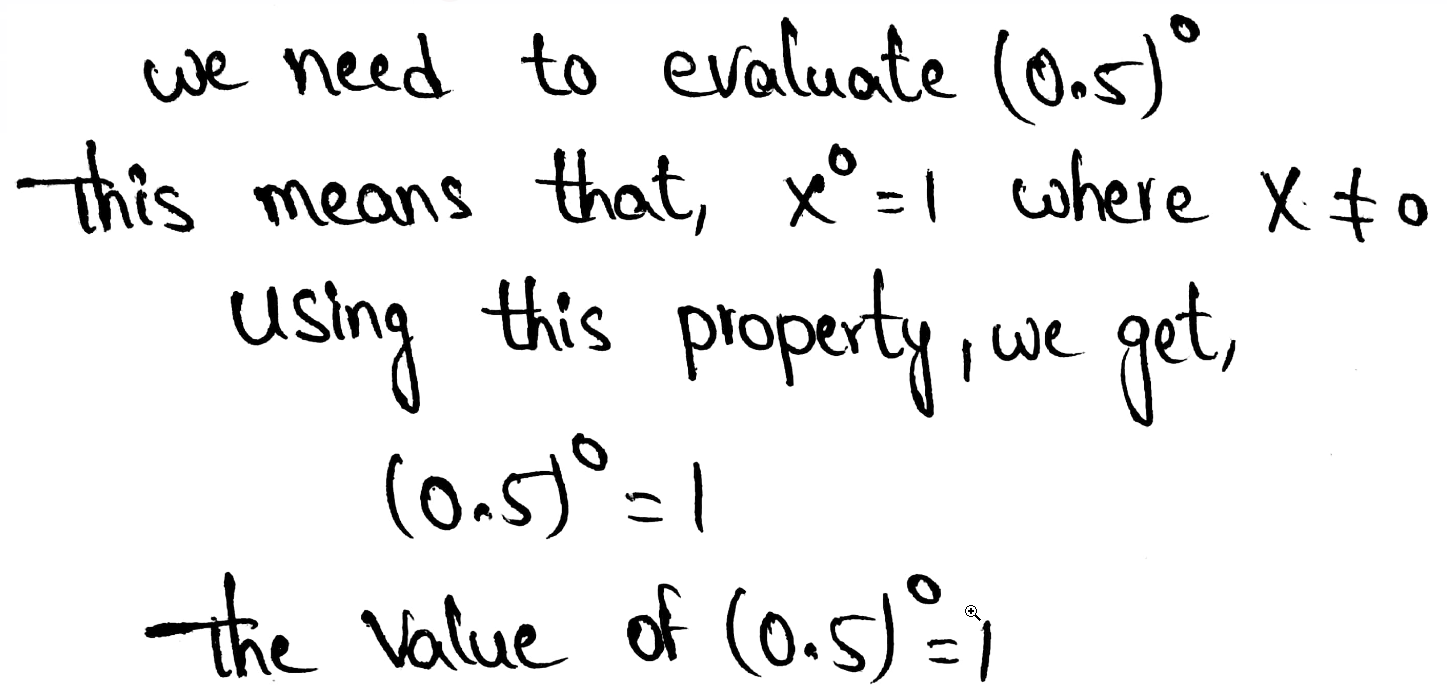 we need to evaluate (0.5)⁰
this means that, x⁰ = 1 where x ≠ 0
using this property, we get,
(0.5)⁰ = 1
the value of (0.5)⁰ = 1